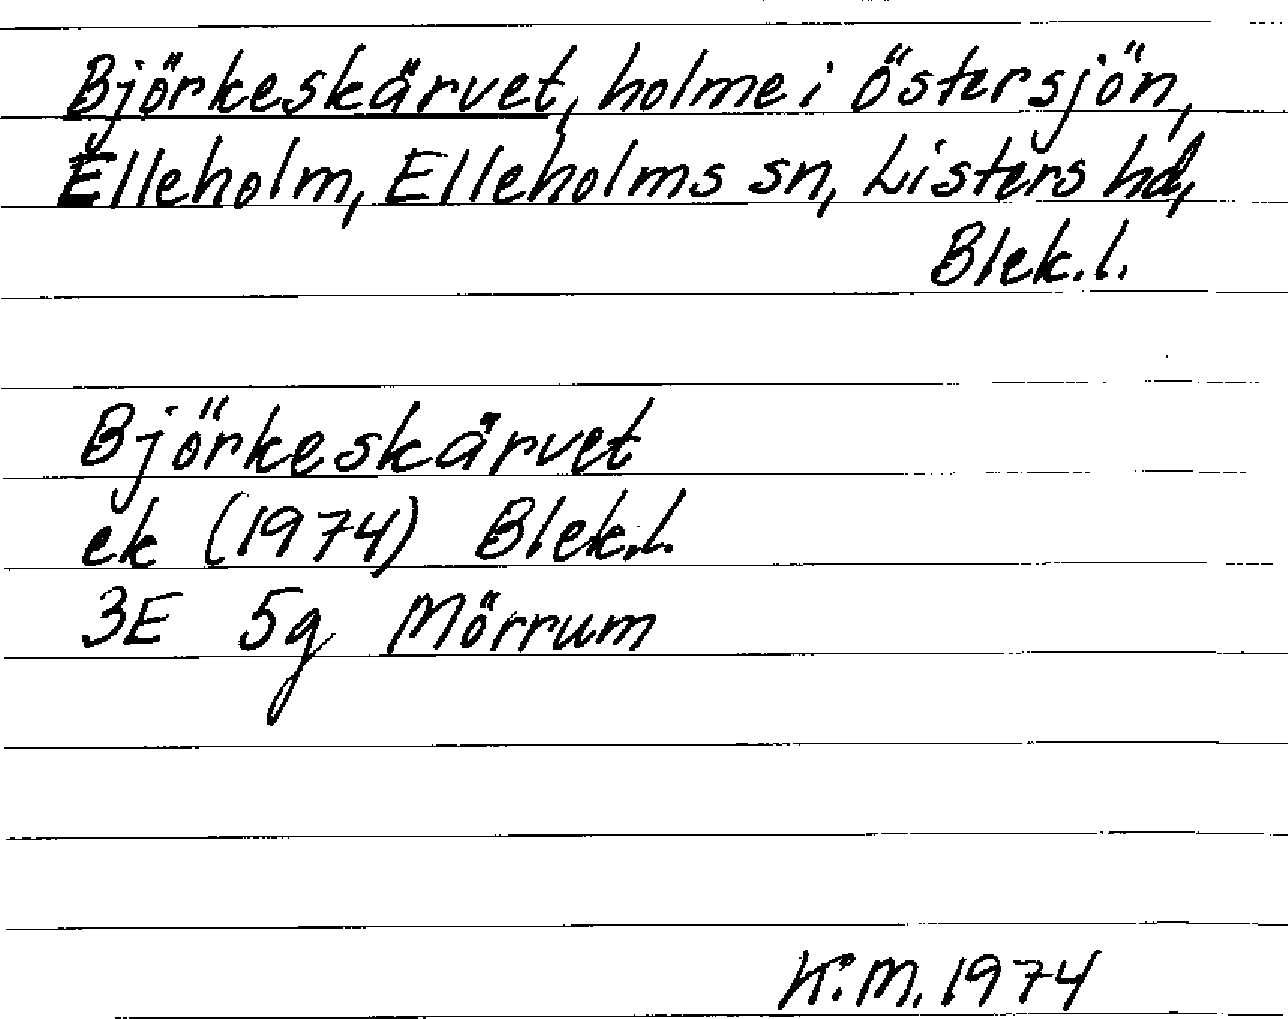 Björkeskärvet, holme i Östersjön,
Elleholm, Elleholms sn, Listers hd,
Blek.l.
Björkeskärvet
ek (1974) Blek.l.
3E 5g Mörrum
K.M. 1974